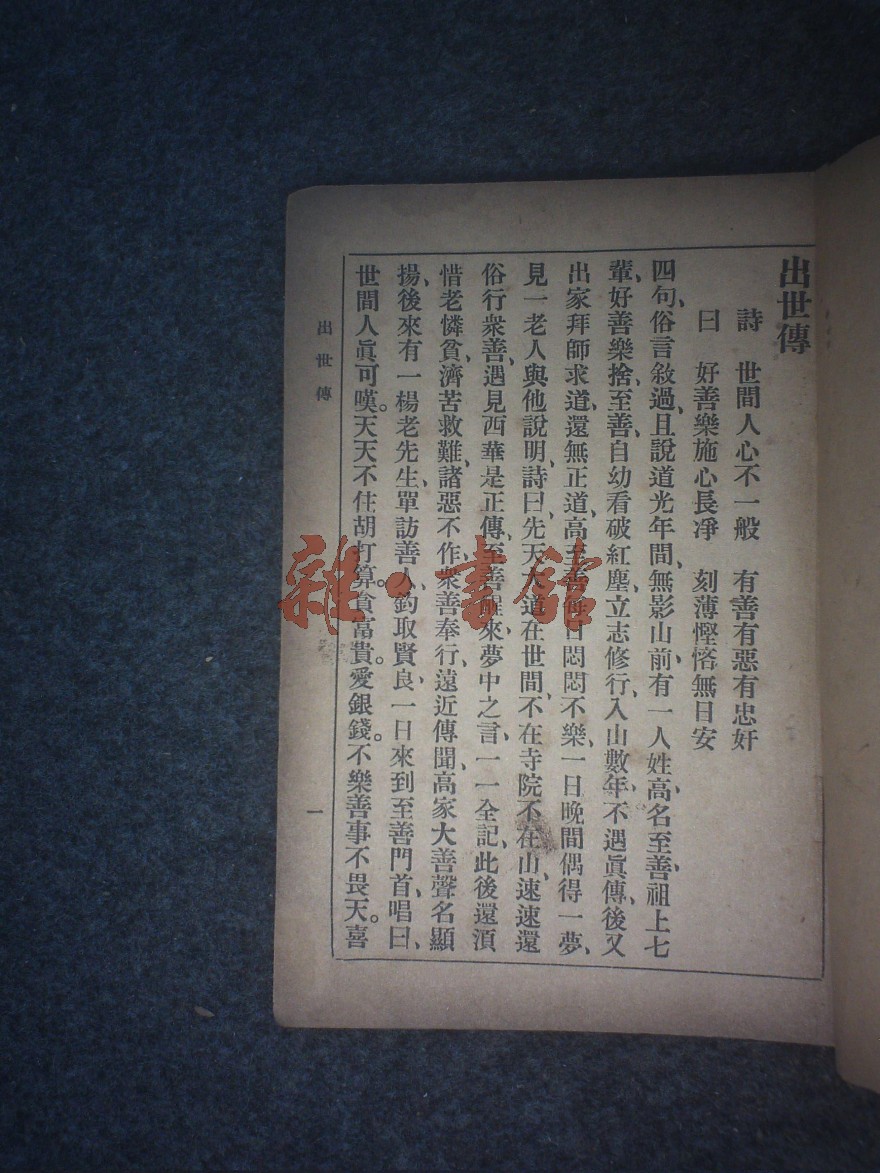 出世傳
詩　世間人心不一般　有善有惡有忠奸
曰　好善樂施心長凈　刻薄慳悋無日安
四句、俗言敘過、且說道光年間、無影山前有一人、姓高、名至善、祖上七
輩、好善樂捨、至善自幼看破紅塵、立志修行、入山數年、不遇眞傳、後又
出家拜師求道、還無正道、高至善每日悶悶不樂、一日晚間、偶得一夢、
見一老人與他說明、詩曰、先天大道在世間、不在寺院不在山、速速還
俗行衆善、遇見西華是正傳、至善醒來、夢中之言、一一全記、此後還湏
惜老憐貧、濟苦救難、諸惡不作、衆善奉行、遠近傳聞、高家大善、聲名顯
揚、後來有一楊老先生、單訪善人、釣取賢良、一日來到至善門首、唱曰、
世間人眞可嘆。天天不住胡打算。貪富貴。愛銀錢。不樂善事不畏天。喜
出世傳
一
雜·書舘